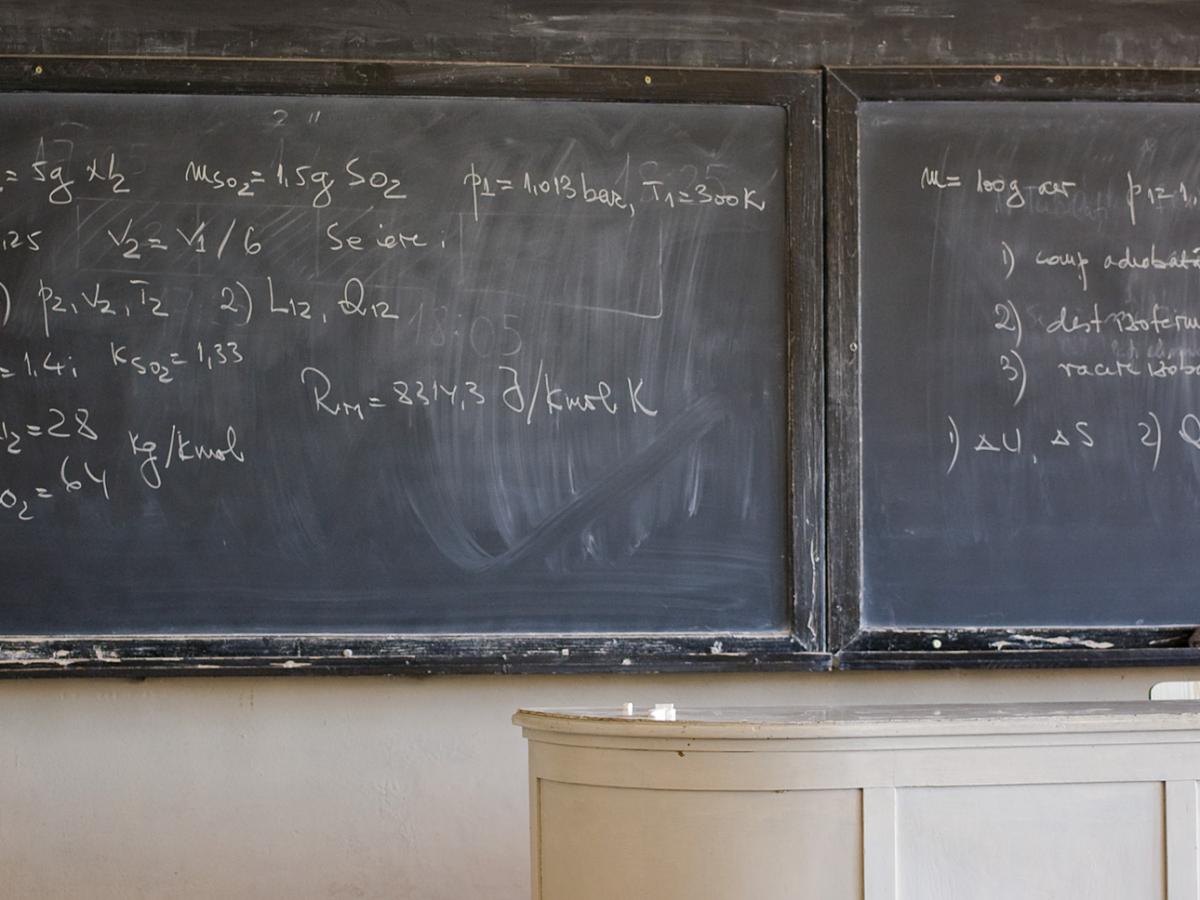 2 "
= 5g N2 mSO2 = 1,5g SO2 p1 = 1,013 bar, T1 = 300K
,25 V2 = V1/6 Se cere:
) p2, V2, T2 2) L12, Q12
= 1,4; KSO2 = 1,33
RM = 8314,3 J/kmol K
N2 = 28
kg/kmol
O2 = 64
18:05
m = 100g aer p1 = 1,
1) comp adiabată
2) dest izoterm
3) racire izoba
1) ΔU, ΔS 2) Q